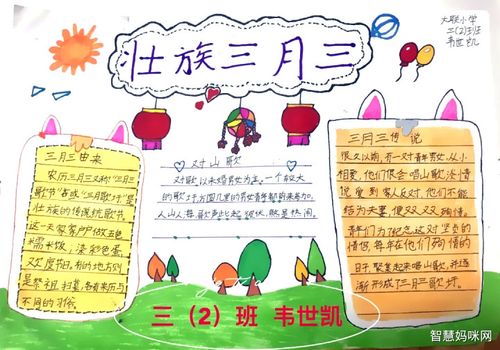 壮族三月三
大联小学
三(2)班
韦世凯
三月三由来
农历三月三又称“三月三
歌节”或“三月歌圩”是
壮族的传统歌节
这一天家家户户做五色
米需米饭，染彩色蛋，
欢度节日，别的地方则
是祭祖扫墓，各有来历与
不同的习俗。
对山歌
对歌以未婚男女为主。一个较大
的歌圩方圆几里的男女青年都前来参加。
人山人海歌声此起彼伏，热是热闹。
三月三传说
很久以前，有一对青年男女，从小
相爱，他们很会唱山歌，
家人反对，他们不能
结为夫妻，便双双殉情。
青年们为纪念这对坚贞的
情侣，每年在他们殉情的
日子，聚集起来唱山歌，并逐
渐形成了三月三歌圩。
三（2）班 韦世凯
智慧妈咪网